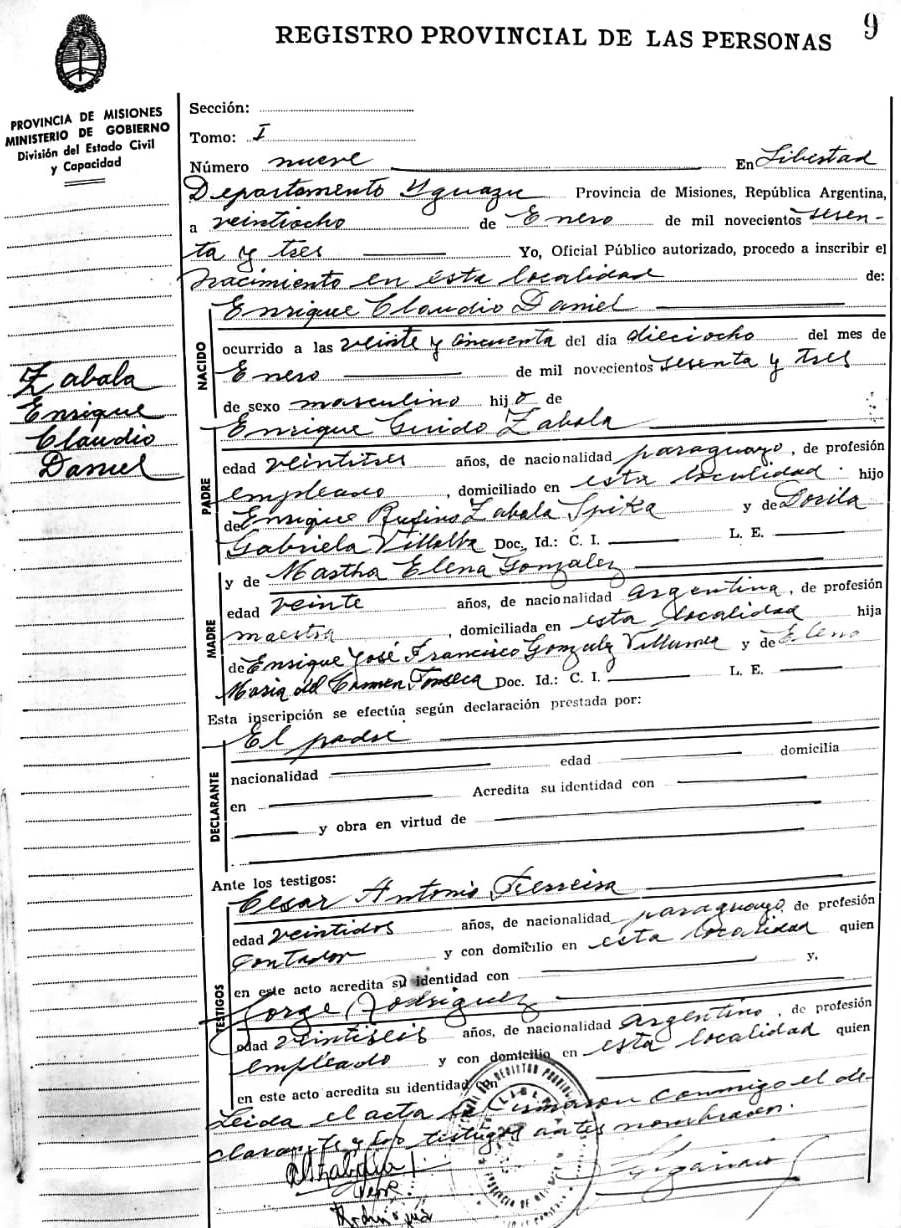 REGISTRO PROVINCIAL DE LAS PERSONAS 9
PROVINCIA DE MISIONES
MINISTERIO DE GOBIERNO
División del Estado Civil
y Capacidad
Zabala
Enrique
Claudio
Daniel
Sección:
Tomo: I
Número nueve En Libertad
Departamento Yguazu Provincia de Misiones, República Argentina,
a veintiocho de Enero de mil novecientos sesen-
ta y tres Yo, Oficial Público autorizado, procedo a inscribir el
nacimiento en esta localidad de:
NACIDO
Enrique Claudio Daniel
ocurrido a las veinte y cincuenta del día dieciocho del mes de
Enero de mil novecientos sesenta y tres
de sexo masculino hijo de
PADRE
Enrique Guido Zabala
edad veintitres años, de nacionalidad paraguayo, de profesión
empleado, domiciliado en esta localidad. hijo
de Enrique Rufino Zabala Spika y de Dorila
Gabriela Villalba Doc. Id.: C. I. L. E.
MADRE
y de Martha Elena Gonzalez
edad veinte años, de nacionalidad argentina, de profesión
maestra, domiciliada en esta localidad hija
de Enrique José Francisco Gonzalez y de Elena
Maria del Carmen Fonseca Doc. Id.: C. I. L. E.
Esta inscripción se efectúa según declaración prestada por:
El padre
DECLARANTE
nacionalidad edad domicilia
en Acredita su identidad con
y obra en virtud de
Ante los testigos:
TESTIGOS
Cesar Antonio Ferreira
edad veintidos años, de nacionalidad paraguayo, de profesión
contador y con domicilio en esta localidad quien
en este acto acredita su identidad con y,
Jorge Rodriguez
edad veintiseis años, de nacionalidad argentino, de profesión
empleado y con domicilio en esta localidad quien
en este acto acredita su identidad
Leida el acta la firmaron conmigo el de-
clarante y los testigos antes nombrados.